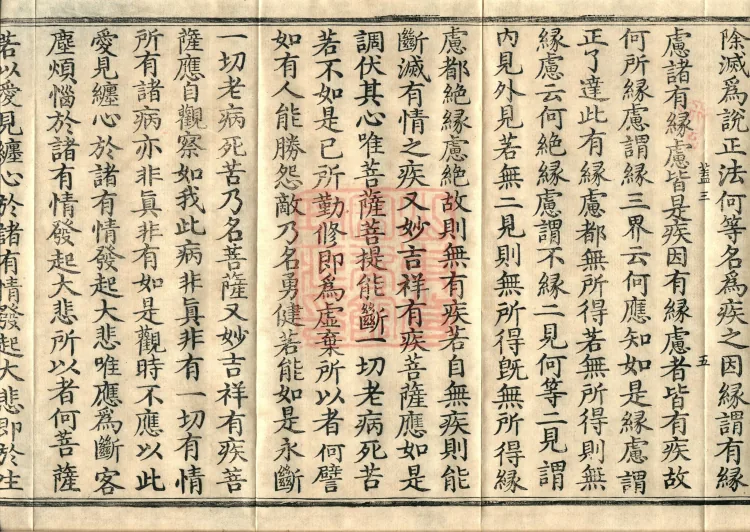 除滅爲說正法何等名爲疾之因縁謂有縁
盖三 五
慮諸有縁慮皆是疾因有縁慮者皆有疾故
何所縁慮謂縁三界云何應知如是縁慮謂
正了達此有縁慮都無所得若無所得則無
縁慮云何絶縁慮謂不縁二見何等二見謂
內見外見若無二見則無所得旣無所得縁
慮都絶縁慮絶故則無有疾若自無疾則能
斷滅有情之疾又妙吉祥有疾菩薩應如是
調伏其心唯菩薩菩提能斷一切老病死苦
若不如是已所勤修即爲虛棄所以者何譬
如有人能勝怨敵乃名勇健若能如是永斷
一切老病死苦乃名菩薩又妙吉祥有疾菩
薩應自觀察如我此病非眞非有一切有情
所有諸病亦非眞非有如是觀時不應以此
愛見纏心於諸有情發起大悲唯應爲斷客
塵煩惱於諸有情發起大悲所以者何菩薩
若以愛見纏心於諸有情發起大悲即於生